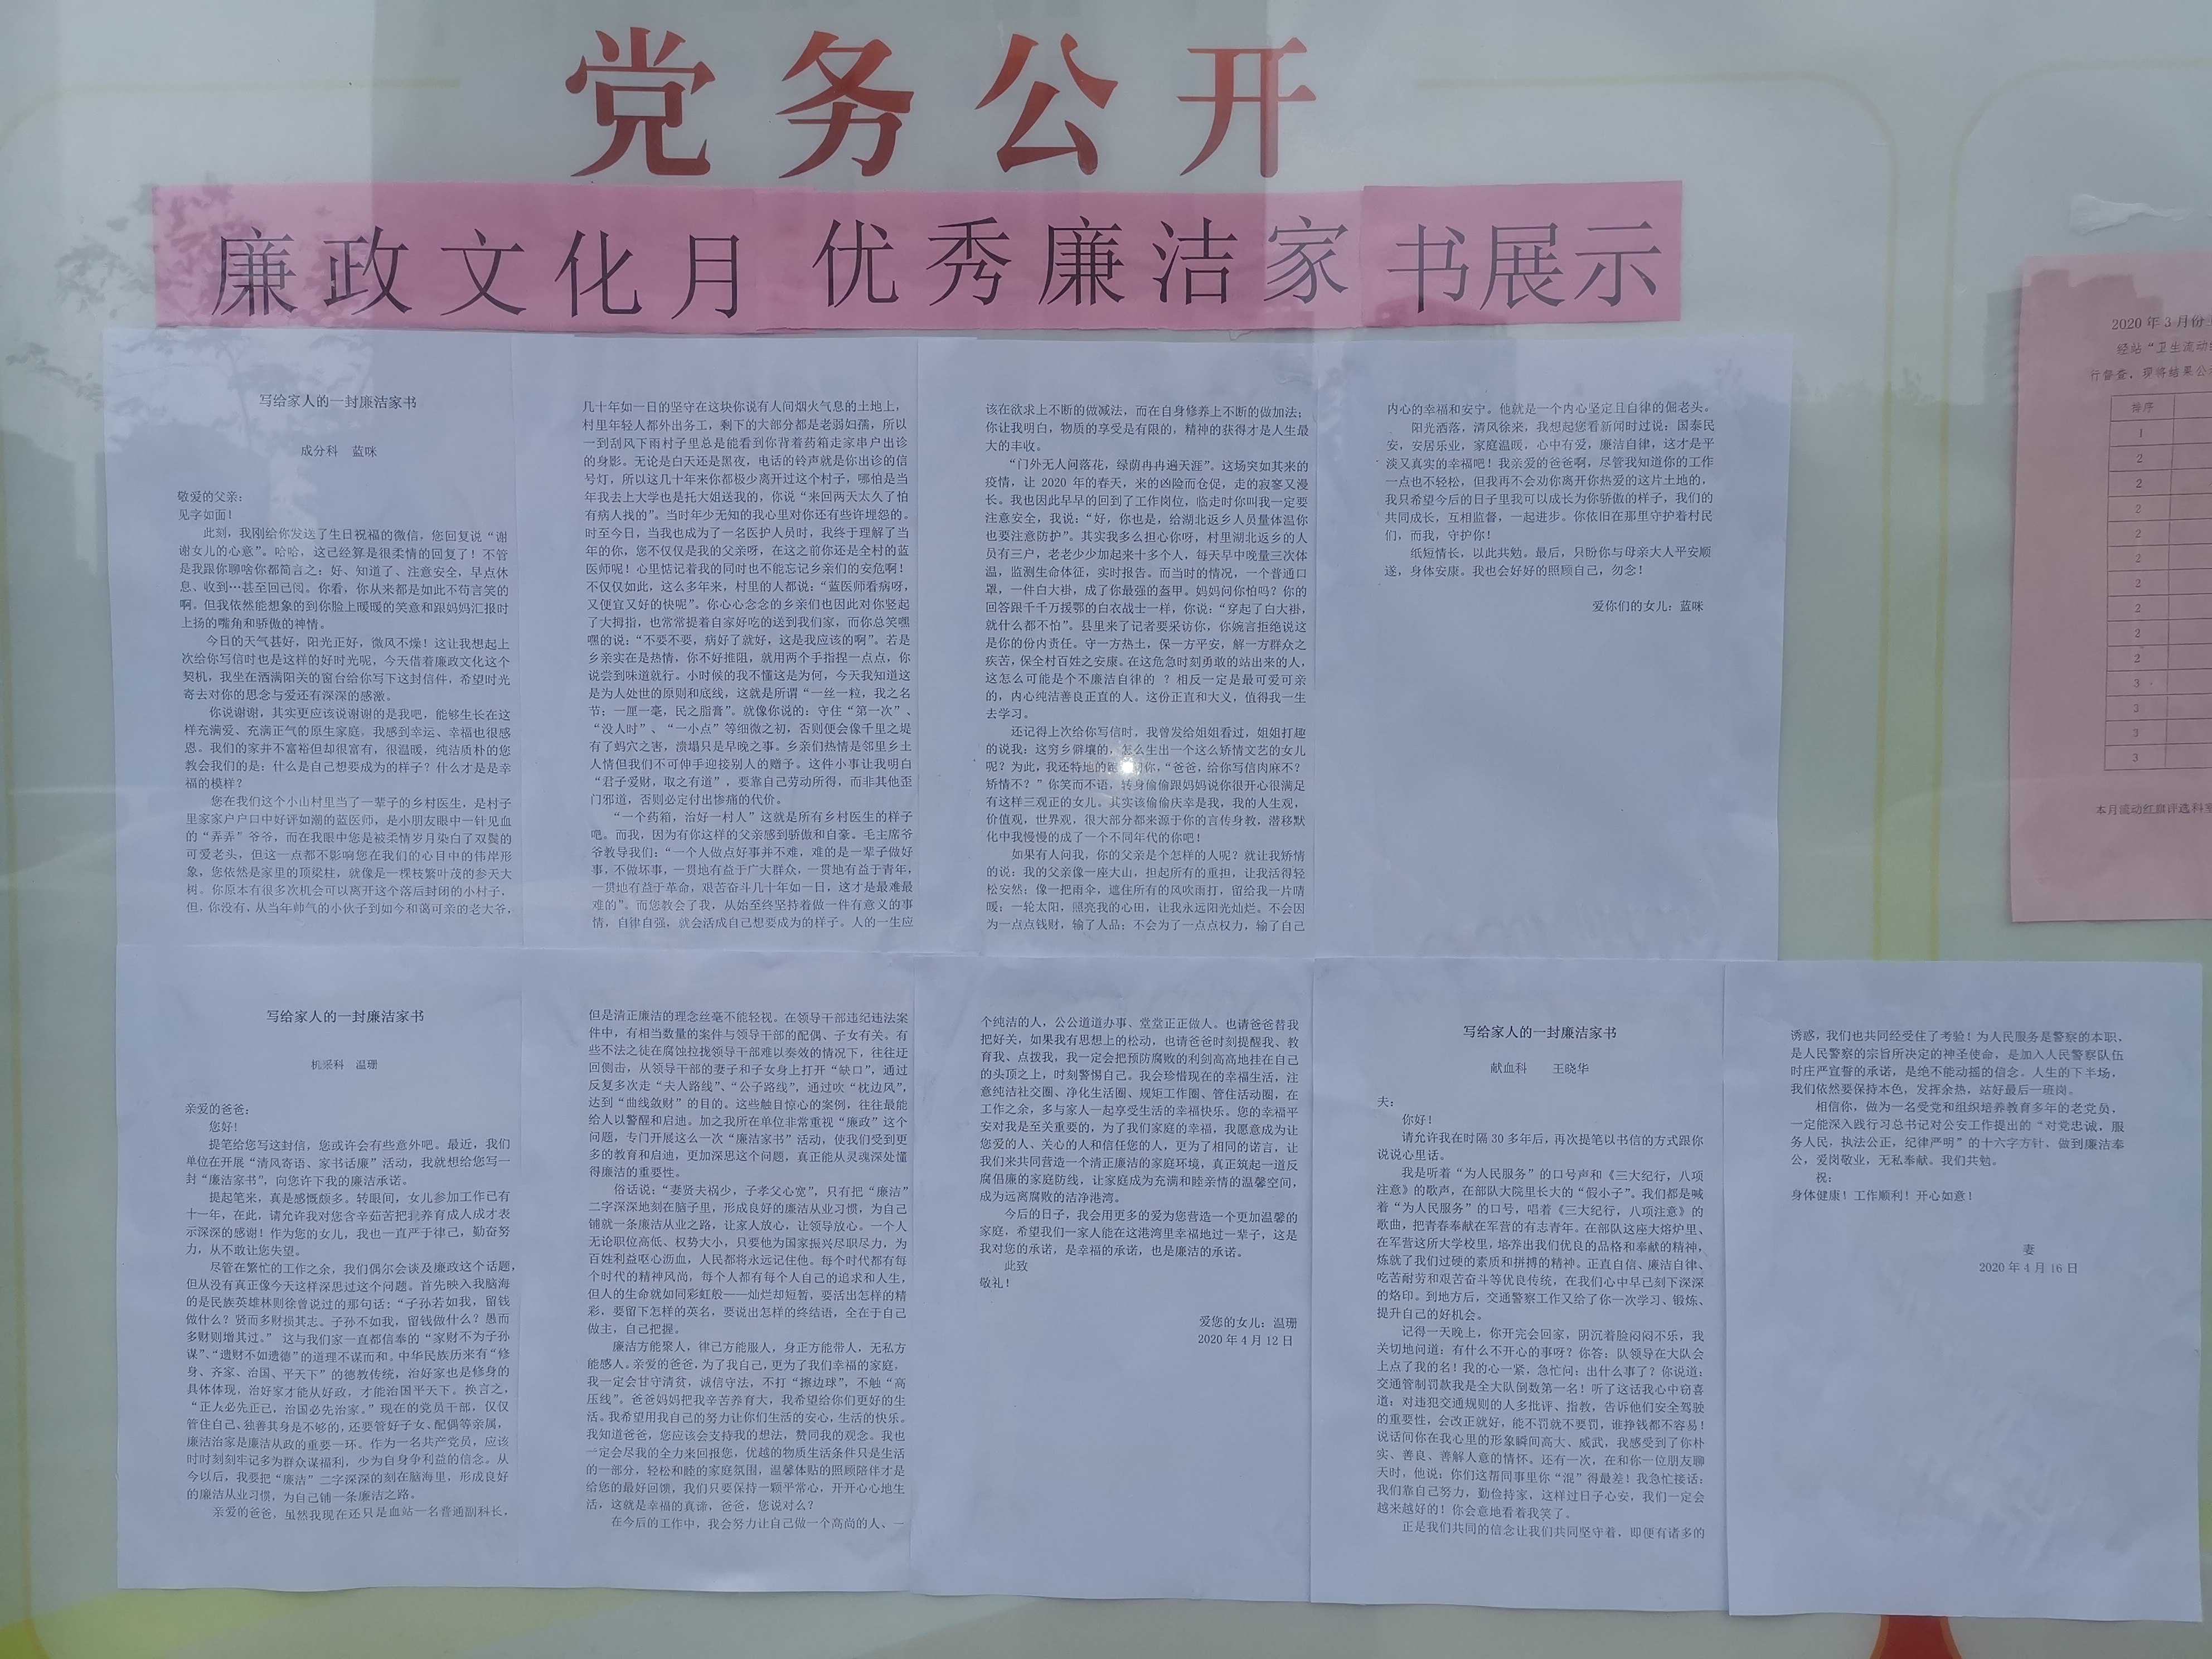 党务公开
廉政文化月 优秀廉洁家书展示
写给家人的一封廉洁家书
成分科 蓝咪
敬爱的父亲：
见字如面！
此刻，我刚给你发送了生日祝福的微信，您回复说“谢
谢女儿的心意”。哈哈，这已经算是很柔情的回复了！不管
是我跟你聊啥你都简言之：好、知道了、注意安全，早点休
息、收到…甚至回已阅。你看，你从来都是如此不苟言笑的
啊。但我依然能想象的到你脸上暖暖的笑意和跟妈妈汇报时
上扬的嘴角和骄傲的神情。
今日的天气甚好，阳光正好，微风不燥！这让我想起上
次给你写信时也是这样的好时光呢，今天借着廉政文化这个
契机，我坐在洒满阳关的窗台给你写下这封信件，希望时光
寄去对你的思念与爱还有深深的感激。
你说谢谢，其实更应该说谢谢的是我吧，能够生长在这
样充满爱、充满正气的原生家庭，我感到幸运、幸福也很感
恩。我们的家并不富裕但却很富有，很温暖，纯洁质朴的您
教会我们的是：什么是自己想要成为的样子？什么才是是幸
福的模样？
您在我们这个小山村里当了一辈子的乡村医生，是村子
里家家户户口中好评如潮的蓝医师，是小朋友眼中一针见血
的“弄弄”爷爷，而在我眼中您是被柔情岁月染白了双鬓的
可爱老头，但这一点都不影响您在我们的心目中的伟岸形
象，您依然是家里的顶梁柱，就像是一棵枝繁叶茂的参天大
树。你原本有很多次机会可以离开这个落后封闭的小村子，
但，你没有，从当年帅气的小伙子到如今和蔼可亲的老大爷，
几十年如一日的坚守在这块你说有人间烟火气息的土地上，
村里年轻人都外出务工，剩下的大部分都是老弱妇孺，所以
一到刮风下雨村子里总是能看到你背着药箱走家串户出诊
的身影。无论是白天还是黑夜，电话的铃声就是你出诊的信
号灯，所以这几十年来你都极少离开过这个村子，哪怕是当
年我去上大学也是托大姐送我的，你说“来回两天太久了怕
有病人找的”。当时年少无知的我心里对你还有些许埋怨的。
时至今日，当我也成为了一名医护人员时，我终于理解了当
年的你，您不仅仅是我的父亲呀，在这之前你还是全村的蓝
医师呢！心里惦记着我的同时也不能忘记乡亲们的安危啊！
不仅仅如此，这么多年来，村里的人都说：“蓝医师看病呀，
又便宜又好的快呢”。你心心念念的乡亲们也因此对你竖起
了大拇指，也常常提着自家好吃的送到我们家，而你总笑嘿
嘿的说：“不要不要，病好了就好，这是我应该的啊”。若是
乡亲实在是热情，你不好推阻，就用两个手指捏一点点，你
说尝到味道就行。小时候的我不懂这是为何，今天我知道这
是为人处世的原则和底线，这就是所谓“一丝一粒，我之名
节；一厘一毫，民之脂膏”。就像你说的：守住“第一次”、
“没人时”、“一小点”等细微之初，否则便会像千里之堤
有了蚂穴之害，溃塌只是早晚之事。乡亲们热情是邻里乡土
人情但我们不可伸手迎接别人的赠予。这件小事让我明白
“君子爱财，取之有道”，要靠自己劳动所得，而非其他歪
门邪道，否则必定付出惨痛的代价。
“一个药箱，治好一村人”这就是所有乡村医生的样子
吧。而我，因为有你这样的父亲感到骄傲和自豪。毛主席爷
爷教导我们：“一个人做点好事并不难，难的是一辈子做好
事，不做坏事，一贯地有益于广大群众，一贯地有益于青年，
一贯地有益于革命，艰苦奋斗几十年如一日，这才是最难最
难的”。而您教会了我，从始至终坚持着做一件有意义的事
情，自律自强，就会活成自己想要成为的样子。人的一生应
该在欲求上不断的做减法，而在自身修养上不断的做加法；
你让我明白，物质的享受是有限的，精神的获得才是人生最
大的丰收。
“门外无人问落花，绿荫冉冉遍天涯”。这场突如其来的
疫情，让 2020 年的春天，来的凶险而仓促，走的寂寥又漫
长。我也因此早早的回到了工作岗位，临走时你叫我一定要
注意安全，我说：“好，你也是，给湖北返乡人员量体温你
也要注意防护”。其实我多么担心你呀，村里湖北返乡的人
员有三户，老老少少加起来十多个人，每天早中晚量三次体
温，监测生命体征，实时报告。而当时的情况，一个普通口
罩，一件白大褂，成了你最强的盔甲。妈妈问你怕吗？你的
回答跟千千万援鄂的白衣战士一样，你说：“穿起了白大褂，
就什么都不怕”。县里来了记者要采访你，你婉言拒绝说这
是你的份内责任。守一方热土，保一方平安，解一方群众之
疾苦，保全村百姓之安康。在这危急时刻勇敢的站出来的人，
这怎么可能是个不廉洁自律的 ？相反一定是最可爱可亲
的，内心纯洁善良正直的人。这份正直和大义，值得我一生
去学习。
还记得上次给你写信时，我曾发给姐姐看过，姐姐打趣
的说我：这穷乡僻壤的，怎么生出一个这么矫情文艺的女儿
呢？为此，我还特地的 你，“爸爸，给你写信肉麻不？
矫情不？”你笑而不语，转身偷偷跟妈妈说你很开心很满足
有这样三观正的女儿。其实该偷偷庆幸是我，我的人生观，
价值观，世界观，很大部分都来源于你的言传身教，潜移默
化中我慢慢的成了一个不同年代的你吧！
如果有人问我，你的父亲是个怎样的人呢？就让我矫情
的说：我的父亲像一座大山，担起所有的重担，让我活得轻
松安然；像一把雨伞，遮住所有的风吹雨打，留给我一片晴
暖；一轮太阳，照亮我的心田，让我永远阳光灿烂。不会因
为一点点钱财，输了人品；不会为了一点点权力，输了自己
内心的幸福和安宁。他就是一个内心坚定且自律的倔老头。
阳光洒落，清风徐来，我想起您看新闻时过说：国泰民
安，安居乐业，家庭温暖，心中有爱，廉洁自律，这才是平
淡又真实的幸福吧！我亲爱的爸爸啊，尽管我知道你的工作
一点也不轻松，但我再不会劝你离开你热爱的这片土地的，
我只希望今后的日子里我可以成长为你骄傲的样子，我们的
共同成长，互相监督，一起进步。你依旧在那里守护着村民
们，而我，守护你！
纸短情长，以此共勉。最后，只盼你与母亲大人平安顺
遂，身体安康。我也会好好的照顾自己，勿念！
爱你们的女儿：蓝咪
写给家人的一封廉洁家书
机采科 温珊
亲爱的爸爸：
您好！
提笔给您写这封信，您或许会有些意外吧。最近，我们
单位在开展“清风寄语、家书话廉”活动，我就想给您写一
封“廉洁家书”，向您许下我的廉洁承诺。
提起笔来，真是感慨颇多。转眼间，女儿参加工作已有
十一年，在此，请允许我对您含辛茹苦把我养育成人成才表
示深深的感谢！作为您的女儿，我也一直严于律己，勤奋努
力，从不敢让您失望。
尽管在繁忙的工作之余，我们偶尔会谈及廉政这个话题，
但从没有真正像今天这样深思过这个问题。首先映入我脑海
的是民族英雄林则徐曾说过的那句话：“子孙若如我，留钱
做什么？贤而多财损其志。子孙不如我，留钱做什么？愚而
多财则增其过。” 这与我们家一直都信奉的“家财不为子孙
谋”、“遗财不如遗德”的道理不谋而和。中华民族历来有“修
身、齐家、治国、平天下”的德教传统，治好家也是修身的
具体体现，治好家才能从好政，才能治国平天下。换言之，
“正人必先正己，治国必先治家。”现在的党员干部，仅仅
管住自己、独善其身是不够的，还要管好子女、配偶等亲属，
廉洁治家是廉洁从政的重要一环。作为一名共产党员，应该
时时刻刻牢记多为群众谋福利，少为自身争利益的信念。从
今以后，我要把“廉洁”二字深深的刻在脑海里，形成良好
的廉洁从业习惯，为自己铺一条廉洁之路。
亲爱的爸爸，虽然我现在还只是血站一名普通副科长，
但是清正廉洁的理念丝毫不能轻视。在领导干部违纪违法案
件中，有相当数量的案件与领导干部的配偶、子女有关。有
些不法之徒在腐蚀拉拢领导干部难以奏效的情况下，往往迂
回侧击，从领导干部的妻子和子女身上打开“缺口”，通过
反复多次走“夫人路线”、“公子路线”，通过吹“枕边风”，
达到“曲线敛财”的目的。这些触目惊心的案例，往往最能
给人以警醒和启迪。加之我所在单位非常重视“廉政”这个
问题，专门开展这么一次“廉洁家书”活动，使我们受到更
多的教育和启迪，更加深思这个问题，真正能从灵魂深处懂
得廉洁的重要性。
俗话说：“妻贤夫祸少，子孝父心宽”，只有把“廉洁”
二字深深地刻在脑子里，形成良好的廉洁从业习惯，为自己
铺就一条廉洁从业之路，让家人放心，让领导放心。一个人
无论职位高低、权势大小，只要他为国家振兴尽职尽力，为
百姓利益呕心沥血，人民都将永远记住他。每个时代都有每
个时代的精神风尚，每个人都有每个人自己的追求和人生，
但人的生命就如同彩虹般——灿烂却短暂，要活出怎样的精
彩，要留下怎样的英名，要说出怎样的终结语，全在于自己
做主，自己把握。
廉洁方能聚人，律己方能服人，身正方能带人，无私方
能感人。亲爱的爸爸，为了我自己，更为了我们幸福的家庭，
我一定会甘守清贫，诚信守法，不打“擦边球”，不触“高
压线”。爸爸妈妈把我辛苦养育大，我希望给你们更好的生
活。我希望用我自己的努力让你们生活的安心，生活的快乐。
我知道爸爸，您应该会支持我的想法，赞同我的观念。我也
一定会尽我的全力来回报您，优越的物质生活条件只是生活
的一部分，轻松和睦的家庭氛围，温馨体贴的照顾陪伴才是
给您的最好回馈，我们只要保持一颗平常心，开开心心地生
活，这就是幸福的真谛，爸爸，您说对么？
在今后的工作中，我会努力让自己做一个高尚的人、一
个纯洁的人，公公道道办事、堂堂正正做人。也请爸爸替我
把好关，如果我有思想上的松动，也请爸爸时刻提醒我、教
育我、点拨我，我一定会把预防腐败的利剑高高地挂在自己
的头顶之上，时刻警惕自己。我会珍惜现在的幸福生活，注
意纯洁社交圈、净化生活圈、规矩工作圈、管住活动圈，在
工作之余，多与家人一起享受生活的幸福快乐。您的幸福平
安对我是至关重要的，为了我们家庭的幸福，我愿意成为让
您爱的人、关心的人和信任您的人，更为了相同的诺言，让
我们来共同营造一个清正廉洁的家庭环境，真正筑起一道反
腐倡廉的家庭防线，让家庭成为充满和睦亲情的温馨空间，
成为远离腐败的洁净港湾。
今后的日子，我会用更多的爱为您营造一个更加温馨的
家庭，希望我们一家人能在这港湾里幸福地过一辈子，这是
我对您的承诺，是幸福的承诺，也是廉洁的承诺。
此致
敬礼！
爱您的女儿：温珊
2020 年 4 月 12 日
写给家人的一封廉洁家书
献血科 王晓华
夫：
你好！
请允许我在时隔 30 多年后，再次提笔以书信的方式跟你
说说心里话。
我是听着“为人民服务”的口号声和《三大纪行，八项
注意》的歌声，在部队大院里长大的“假小子”。我们都是喊
着“为人民服务”的口号，唱着《三大纪行，八项注意》的
歌曲，把青春奉献在军营的有志青年。在部队这座大熔炉里、
在军营这所大学校里，培养出我们优良的品格和奉献的精神，
炼就了我们过硬的素质和拼搏的精神。正直自信、廉洁自律、
吃苦耐劳和艰苦奋斗等优良传统，在我们心中早已刻下深深
的烙印。到地方后，交通警察工作又给了你一次学习、锻炼、
提升自己的好机会。
记得一天晚上，你开完会回家，阴沉着脸闷闷不乐，我
关切地问道：有什么不开心的事呀？你答：队领导在大队会
上点了我的名！我的心一紧，急忙问：出什么事了？你说道：
交通管制罚款我是全大队倒数第一名！听了这话我心中窃喜
道：对违犯交通规则的人多批评、指教，告诉他们安全驾驶
的重要性，会改正就好，能不罚就不要罚，谁挣钱都不容易！
说话间你在我心里的形象瞬间高大、威武，我感受到了你朴
实、善良、善解人意的情怀。还有一次，在和你一位朋友聊
天时，他说：你们这帮同事里你“混”得最差！我急忙接话：
我们靠自己努力，勤俭持家，这样过日子心安，我们一定会
越来越好的！你会意地看着我笑了。
正是我们共同的信念让我们共同坚守着，即便有诸多的
诱惑，我们也共同经受住了考验！为人民服务是警察的本职，
是人民警察的宗旨所决定的神圣使命，是加入人民警察队伍
时庄严宣誓的承诺，是绝不能动摇的信念。人生的下半场，
我们依然要保持本色，发挥余热，站好最后一班岗。
相信你，做为一名受党和组织培养教育多年的老党员，
一定能深入践行习总书记对公安工作提出的“对党忠诚，服
务人民，执法公正，纪律严明”的十六字方针、做到廉洁奉
公，爱岗敬业，无私奉献。我们共勉。
祝：
身体健康！工作顺利！开心如意！
妻
2020 年 4 月 16 日
2020 年 3 月份
经站“卫生流动
行督查，现将结果公
排序
1
2
2
2
2
2
2
2
2
2
3
3
3
3
本月流动红旗评选科室